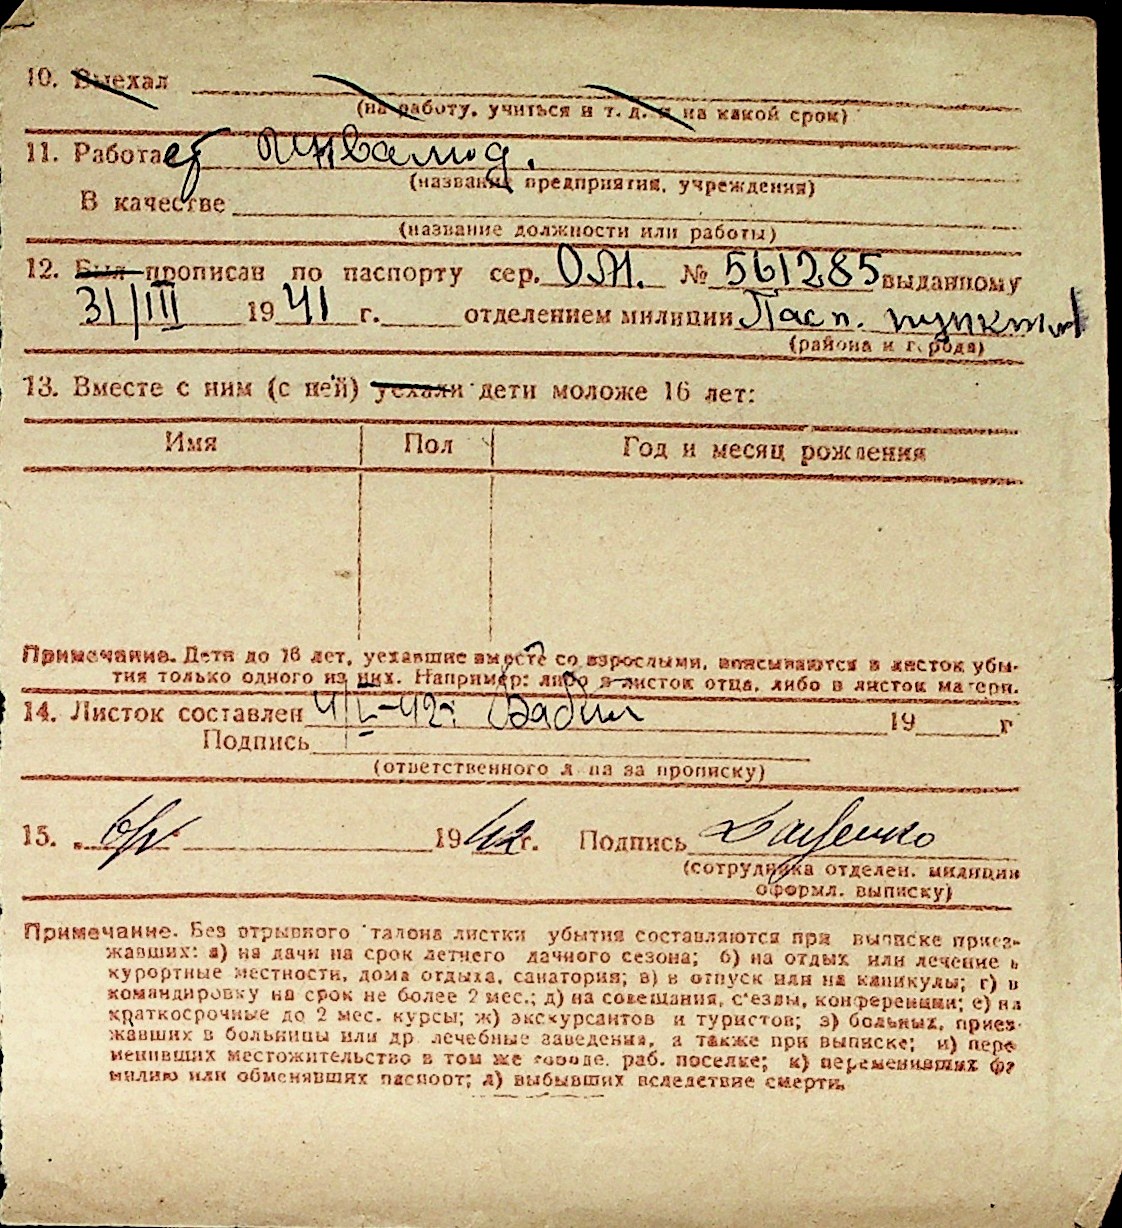 10. Выехал
(на работу, учиться и т. д. и на какой срок)
11. Работает инвалид.
(название предприятия, учреждения)
В качестве
(название должности или работы)
12. Был прописан по паспорту сер. ОЯ. № 561285 выданному
31/III 1941 г. отделением милиции Пасп. пунктом
(района и города)
13. Вместе с ним (с ней) уехали дети моложе 16 лет:
Имя Пол Год и месяц рождения
Примечание. Дети до 16 лет, уехавшие вместе со взрослыми, вписываются в листок убы-
тия только одного из них. Например: либо в листок отца, либо в листок матери.
14. Листок составлен 19 г
Подпись
(ответственного лица за прописку)
15. 1942 г. Подпись
(сотрудника отделен. милиции
оформл. выписку)
Примечание. Без отрывного талона листки убытия составляются при выписке приез-
жавших: а) на дачи на срок летнего дачного сезона; б) на отдых или лечение в
курортные местности, дома отдыха, санатория; в) в отпуск или на каникулы; г) в
командировку на срок не более 2 мес.; д) на совещания, с'езды, конференции; е) на
краткосрочные до 2 мес. курсы; ж) экскурсантов и туристов; з) больных, приез-
жавших в больницы или др. лечебные заведения, а также при выписке; и) пере
менивших местожительство в том же городе, раб. поселке; к) переменивших фа
милию или обменявших паспорт; л) выбывших вследствие смерти.